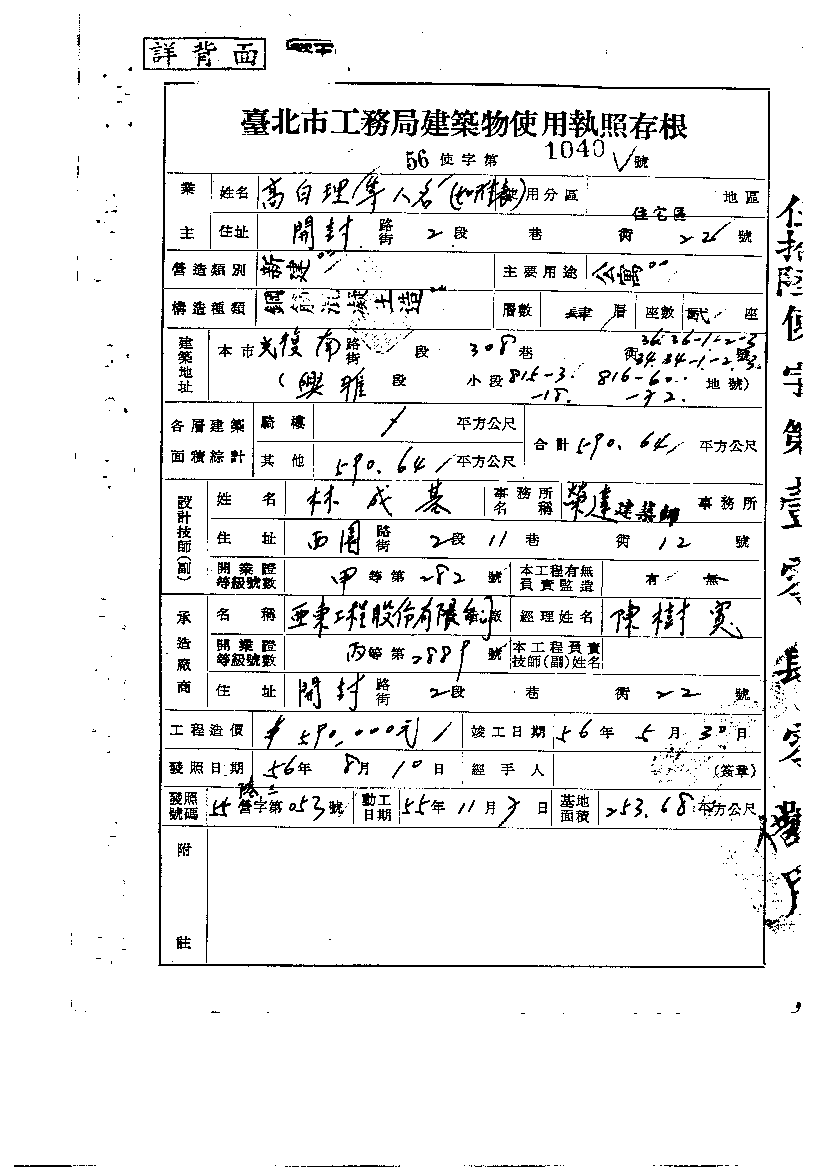 詳背面
臺北市工務局建築物使用執照存根
56 使字第 1040 號
業主 姓名 高白理 等 人名 用分區 住宅區 地區
住址 開封 路街 2 段 巷 衖 22 號
營造類別 新建 主要用途 公寓
構造種類 鋼筋混凝土造 層數 肆 層 座數 貳 座
建築地址 本市 光復南 路街 段 308 巷 衖 36.36-1-2-3 34.34-1-2.3. 號
(興雅 段 小段 815-3. -18. 816-60. -72. 地號)
各層建築面積綜計 騎樓 平方公尺 合計 590.64 平方公尺
其他 590.64 平方公尺
設計技師(副) 姓名 林成基 事務所名稱 榮達建築師 事務所
住址 西園 路街 2 段 11 巷 衖 12 號
開業證等級號數 甲 等第 282 號 本工程有無負責監造 有 無
承造廠商 名稱 亞東工程股份有限公司 廠 經理姓名 陳樹寬
開業證等級號數 丙 等第 2889 號 本工程負責技師(副)姓名
住址 開封 路街 2 段 巷 衖 22 號
工程造價 590,000元 竣工日期 56 年 5 月 30 日
發照日期 56 年 8 月 10 日 經手人 (簽章)
發照號碼 55 營字第 053 號 動工日期 55 年 11 月 7 日 基地面積 253.68 平方公尺
附註
伍拾陸使字第壹零肆零號